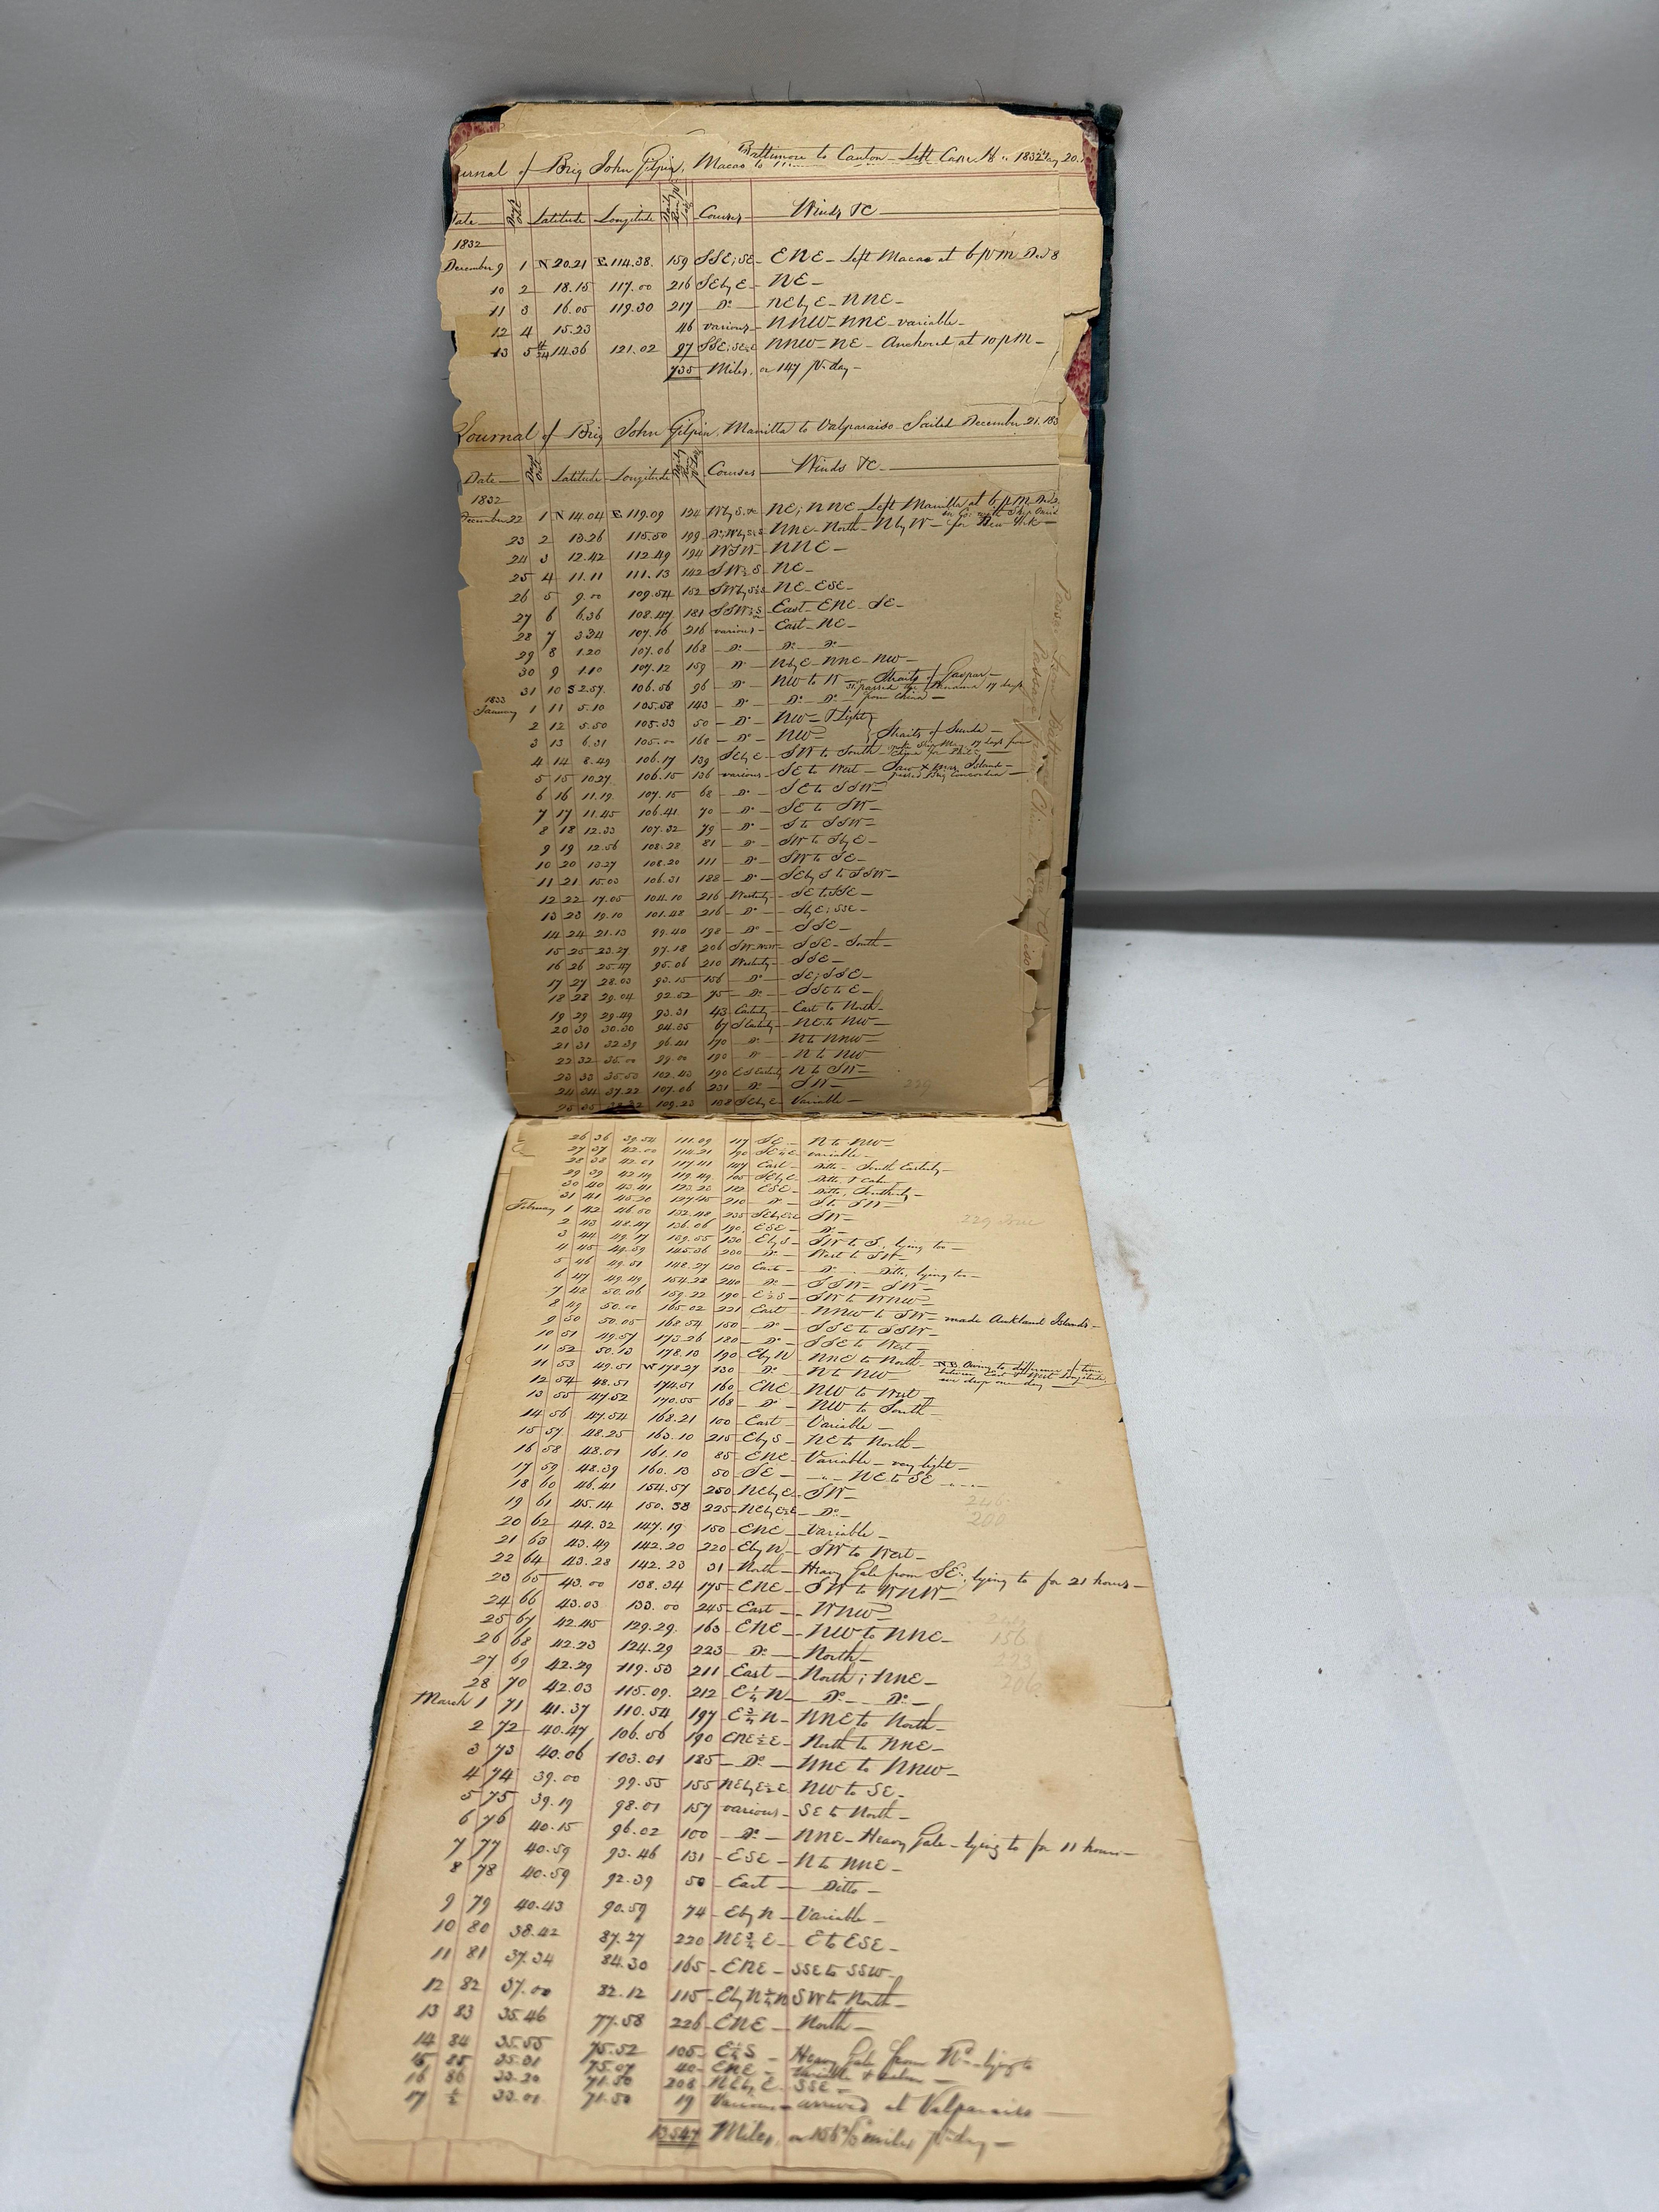 Baltimore to Canton - Left Cape H.. 1832 May 20.
urnal of Brig John Gilpin, Macao to
Date Days Out Latitude Longitude Daily Run Courses Winds &C
1832
December 9 1 N 20.21 E 114.38. 159 SSE; SE - ENE - Left Macao at 6 PM Dec 8
10 2 18.15 117.00 216 SEbyE - NE -
11 3 16.05 119.30 217 - Do - NEbyE - NNE -
12 4 15.23 46 various - NNW - NNE - variable -
13 5 14.36 121.02 97 NNW - NE - Anchored at 10 PM -
735 Miles, or 147 pr day -
Journal of Brig John Gilpin, Manilla to Valparaiso - Sailed December 21. 183
Date Days Out Latitude Longitude Daily Run Courses Winds &C
1832
December 22 1 N 14.04 E 119.09 124 NE; NNE - Left Manilla at 6 PM
for New York -
23 2 13.26 115.50 199 NNE - North - NbyW -
24 3 12.42 112.49 194 WSW - NNE -
25 4 11.11 111.13 142 SW½S - NE -
26 5 9.00 109.54 152 NE - ESE -
27 6 6.36 108.47 181 East - ENE - SE -
28 7 3.34 107.16 216 various - East - NE -
29 8 1.20 107.06 168 - Do - Do - Do -
30 9 1.10 107.12 159 - Do - NbyE - NNE - NW -
31 10 S 2.57. 106.56 96 - Do - NW to W - Straits of Gaspar -
passed the Panama 17 days
from China -
1833
January 1 11 5.10 105.58 143 - Do - Do - Do -
2 12 5.50 105.33 50 - Do - NW - & Light
3 13 6.31 105.00 168 - Do - NW - Straits of Sunda -
4 14 8.49 106.17 139 SEbyE - SW to South -
5 15 10.27. 106.15 136 various - SE to West - Saw X mas Island -
passed Brig Concordia -
6 16 11.19. 107.15 68 - Do - SE to SSW -
7 17 11.45 106.41 70 - Do - SE to SW -
8 18 12.33 107.32 79 - Do - S to SSW -
9 19 12.56 108.28 81 - Do - SW to SbyE -
10 20 13.27 108.20 111 - Do - SW to SE -
11 21 15.03 106.31 188 - Do - SEbyS to SSW -
12 22 17.05 104.10 216 Westerly - SE to SSE -
13 23 19.10 101.48 216 - Do - SbyE; SSE -
14 24 21.13 99.40 198 - Do - SSE -
15 25 23.27 97.18 206 SSE - South -
16 26 25.47 95.06 210 Westerly - SSE -
17 27 28.03 93.15 156 - Do - SE; SSE -
18 28 29.04 92.52 75 - Do - SSE to E -
19 29 29.49 93.31 43 Easterly - East to North -
20 30 30.30 94.05 67 SEasterly - NE to NW -
21 31 32.39 96.41 170 - Do - N to NNW -
22 32 35.00 99.00 190 - Do - N to NW -
23 33 35.50 102.43 190 ESEasterly N to SW -
24 34 37.22 107.06 231 - Do - SW - 229
25 35 109.23 108 SEbyE - Variable -
26 36 39.54 111.09 117 SE - N to NW -
27 37 42.00 114.21 190 SE½E - variable -
28 38 42.01 117.41 147 East - Ditto - South Easterly -
29 39 42.49 119.49 105 SEbyE - Ditto, & Calm -
30 40 43.41 123.23 112 ESE - Ditto, Southerly -
31 41 45.20 127.45 210 - Do - S to SW -
February 1 42 46.50 132.48 235 SW -
2 43 48.47 136.06 190. ESE - Do -
3 44 49.17 139.55 130 EbyS - SW to S. lying too -
4 45 49.59 145.36 200 - Do - West to SW -
5 46 49.51 148.27 120 East - Do - Ditto, lying too -
6 47 49.49 154.28 240 - Do - SSW - SW -
7 48 50.06 159.22 190 - E½S - SW to WNW -
8 49 50.00 165.02 221 East - NNW to SW - made Aukland Islands -
9 50 50.05 168.54 150 - Do - SSE to SSW -
10 51 49.57 173.26 180 - Do - SSE to West -
11 52 50.13 178.13 190 EbyN - NNE to North - NB Owing to difference of time
between East & West Longitude
we drop one day -
11 53 49.51 W 178.27 130 Do - N to NW -
12 54 48.51 174.51 160 - ENE - NW to West -
13 55 47.52 170.55 168 - Do - NW to South -
14 56 47.54 168.21 100 - East - Variable -
15 57 48.25 163.10 215 - EbyS - NE to North -
16 58 48.01 161.10 85 - ENE - Variable - very light -
17 59 48.39 160.13 50 - SE - NE to SE -
18 60 46.41 154.57 250 - NEbyE - SW -
19 61 45.14 150.38 225 - NEbyE½E - Do -
20 62 44.32 147.19 150 - ENE - Variable -
21 63 43.49 142.20 220 - EbyN - SW to West -
22 64 43.28 142.23 31 - North - Heavy Gale from SE, lying to for 21 hours -
23 65 43.00 138.34 175 - ENE - SW to WNW -
24 66 43.03 133.00 245 - East - WNW -
25 67 42.45 129.29. 163 - ENE - NW to NNE - 156
26 68 42.23 124.29 223 - Do - North -
27 69 42.29 119.53 211 - East - North; NNE -
28 70 42.03 115.09. 212 - E¼N - Do - Do -
March 1 71 41.37 110.54 197 - E¾N - NNE to North -
2 72 40.47 106.56 190 ENE½E - North to NNE -
3 73 40.06 103.01 185 - Do - NNE to NNW -
4 74 39.00 99.55 155 NEbyE½E NW to SE -
5 75 39.19 98.01 157 various - SE to North -
6 76 40.15 96.02 100 - Do - NNE - Heavy Gale - lying to for 11 hours -
7 77 40.59 93.46 131 - ESE - N to NNE -
8 78 40.59 92.39 50 - East - Ditto -
9 79 40.43 90.59 74 - EbyN - Variable -
10 80 38.42 87.27 220 NE¾E - E to ESE -
11 81 37.34 84.30 165 - ENE - SSE to SSW -
12 82 37.00 82.12 115 - EbyN½N SW to North -
13 83 35.46 77.58 226 - ENE - North -
14 84 35.55 75.52 105 - E½S - Heavy Gale from No - lying to
15 85 35.01 75.07 40 - ENE - Variable & calm -
16 86 33.20 71.50 206 - NEbyE - SSE -
17 ½ 33.01 71.50 19 Various - arrived at Valparaiso -
13547 Miles, or 156 miles pr day -